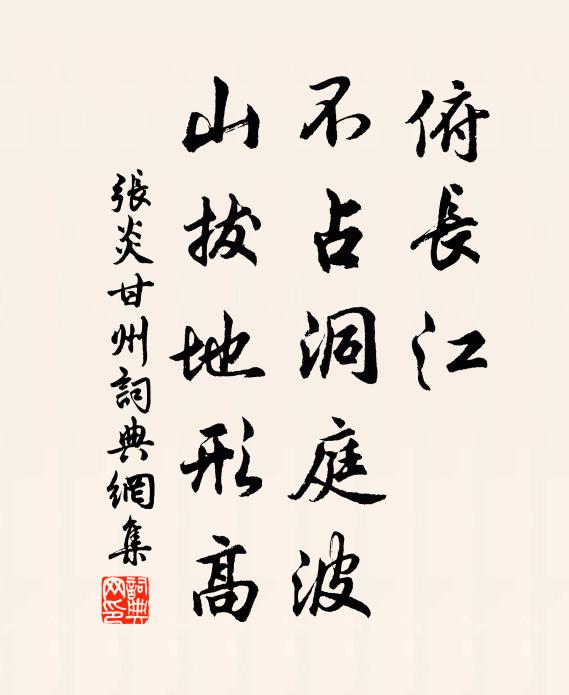 俯長江
不占洞庭波
山拔地形高
張炎甘州詞典網集
詞典网印